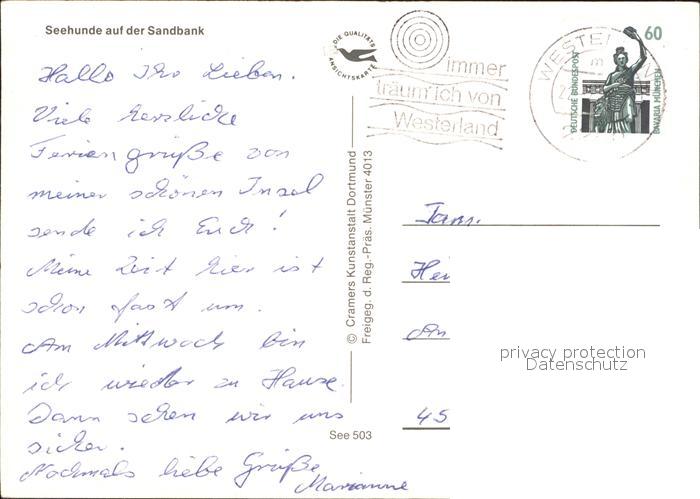 Seehunde auf der Sandbank
Hallo Ihr Lieben.
Viele herzliche
Feriengrüße von
meiner schönen Insel
sende ich Euch!
Meine Zeit hier ist
schon fast um.
Am Mittwoch bin
ich wieder zu Hause.
Dann sehen wir uns
sicher.
Nochmals liebe Grüße
Marianne
DIE QUALITÄTS
ANSICHTSKARTE
© Cramers Kunstanstalt Dortmund
Freigeg. d. Reg.-Präs. Münster 4013
See 503
immer
träum' ich von
Westerland
60
DEUTSCHE BUNDESPOST
BAVARIA MÜNCHEN
m
Fam.
Hei
An
45
privacy protection
Datenschutz